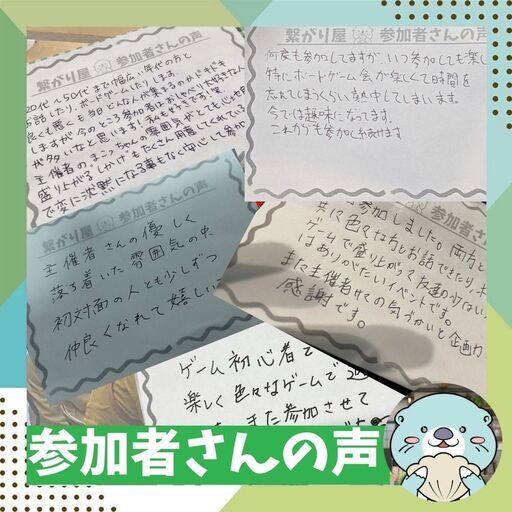 繋がり屋 参加者さんの声
20代〜50代まで幅広い年代の方と
お話したり、ボードゲームしたりします。
良くも悪くも当日どんな人が集まるのかドキドキ
しますが今のところ参加者は
が多いなと思います!私も
主催者のまこっちゃんの雰囲気がとても心地
盛り上がる"しかけ"もたくさん用意してくれている
で変に沈黙になる事もなく安心して参加
参加者さんの声
何度も参加してますが、いつ参加しても楽し
特にボードゲーム会が楽しくて時間を
忘れてしまうくらい熱中してしまいます。
今では趣味になってます。
これからも参加し続けます
繋がり屋 参加者さんの声
主催者さんの優しく
落ち着いた雰囲気の中
初対面の人とも少しずつ
仲良くなれて嬉しい
参加しました。両方と
色々な方とお話できたり、ボ
ゲームで盛り上がって、友達の少ない
はありがたいイベントです。
また主催者サマの気づかいと企画力
感謝です。
ゲーム初心者で
楽しく色々なゲームで遊
また参加させて
参加者さんの声